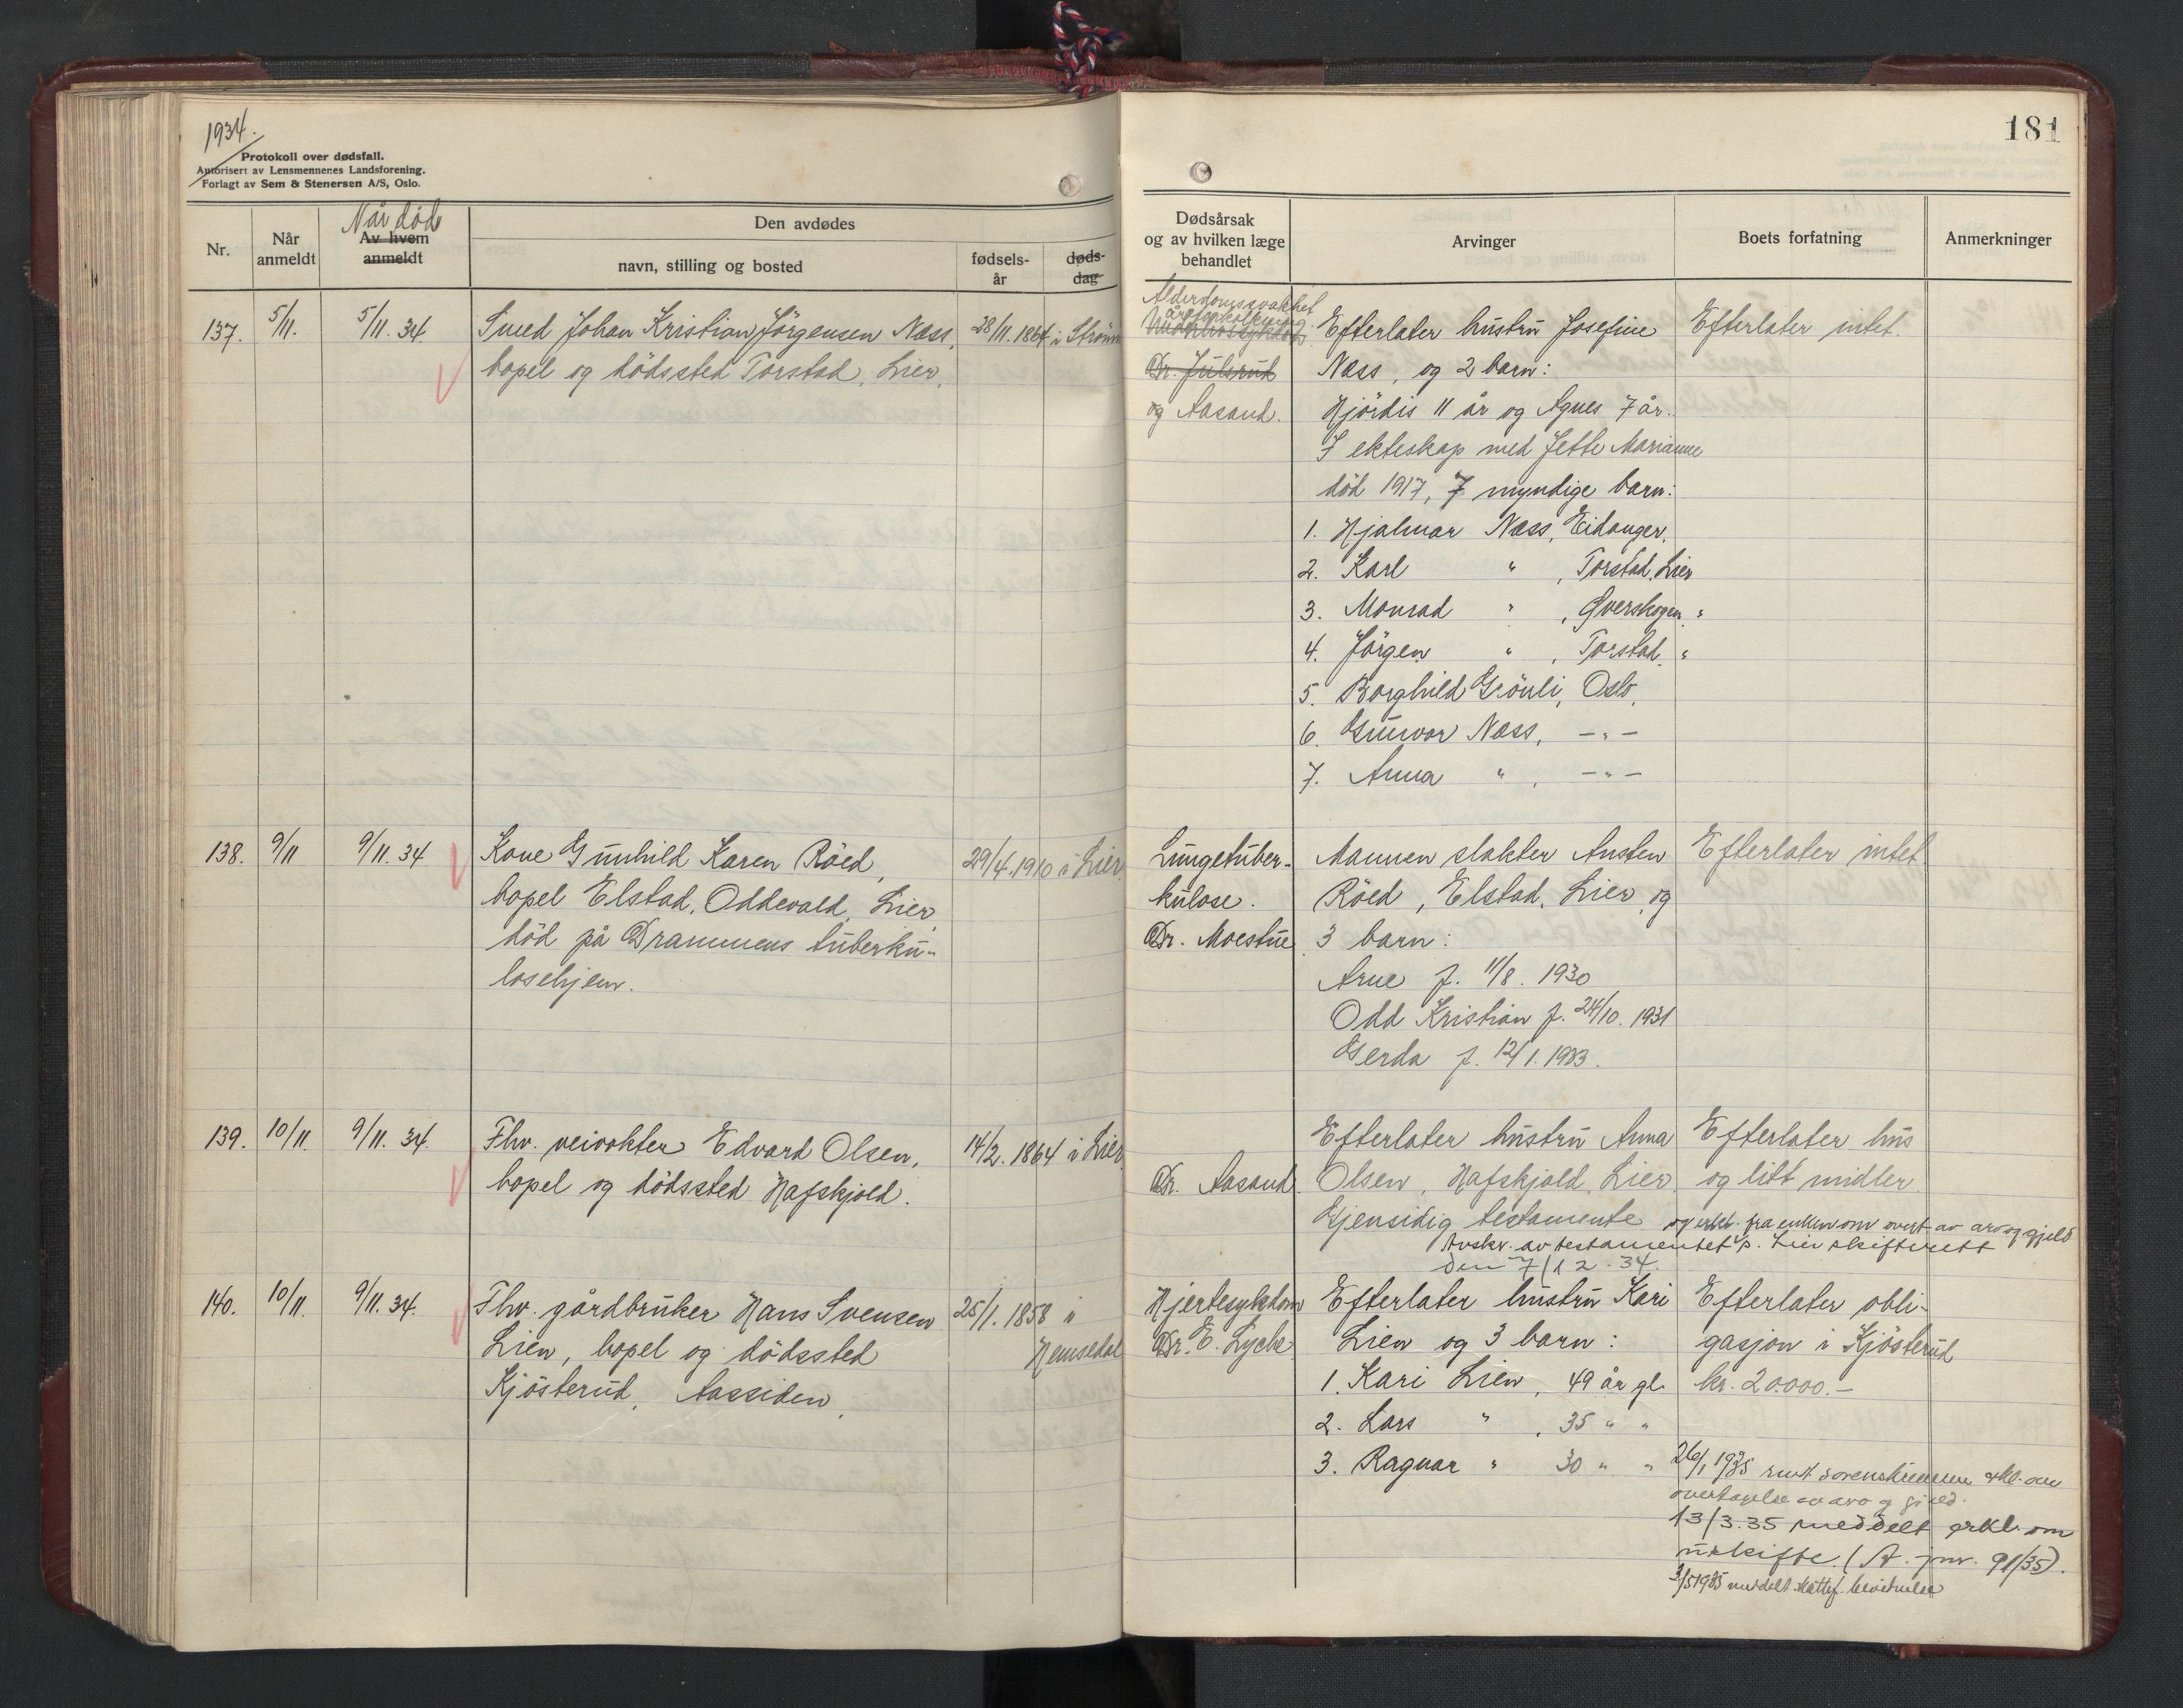 1934.
Protokoll over dødsfall.
Autorisert av Lensmennenes Landsforening.
Forlagt av Sem & Stenersen A/S, Oslo.
181
Nr.
Når anmeldt
Når död
Av hvem anmeldt
Den avdødes
navn, stilling og bosted
fødsels-
år
døds-
dag
Dødsårsak
og av hvilken læge
behandlet
Arvinger
Boets forfatning
Anmerkninger
137. 5/11. 5/11. 34. Smed Johan Kristian Jörgensen Næss, 28/11. 1864 i Strömm
bopel og dödssted Torstad, Lier.
Alderdomssvakhet
åreforkalkning
Dr. Julsrud
og Aasand.
Efterlater hustru Josefine
Næss, og 2 barn:
Hjördis 11 år og Agnes 7 år.
I ekteskap med Jette Marianne
död 1917, 7 myndige barn:
1. Hjalmar Næss, Eidanger.
2. Karl " , Torstad, Lier
3. Monrad " , Överskogen, "
4. Jörgen " , Torstad, "
5. Borghild Grönli, Oslo.
6. Gunvor Næss, - " -
7. Anna " , - " -
Efterlater intet.
138. 9/11 9/11. 34 Kone Gunhild Karen Röed, 29/4. 1910 i Lier.
bopel Elstad, Oddevald, Lier,
död på Drammens tuberku-
losehjem.
Lungetuber-
kulose.
Dr. Moestue
Mannen slakter Austen
Röed, Elstad, Lier, og
3 barn:
Arne f. 11/8. 1930
Odd Kristian f. 24/10. 1931
Gerda f. 12/1. 1933.
Efterlater intet
139. 10/11. 9/11. 34. Fhv. veivokter Edvard Olsen, 14/2. 1864 i Lier.
bopel og dödssted Hafskjold.
Dr. Aasand.
Efterlater hustru Anna
Olsen, Hafskjold, Lier.
Gjensidig testamente og erkl. fra enken om overt. av arv og gjeld
Avskr. av testamentet s. Lier skifterett
den 7/12. 34.
Efterlater hus
og litt midler.
140. 10/11. 9/11. 34. Fhv. gårdbruker Hans Svensen 25/1. 1858 i
Lien, bopel og dödssted Hemsedal
Kjösterud, Aassiden.
Hjertesykdom
Dr. E. Lyche
Efterlater hustru Kari
Lien og 3 barn:
1. Kari Lien, 49 år gl.
2. Lars " , 35 " "
3. Ragnar " 30 " "
Efterlater obli-
gasjon i Kjösterud
kr. 20.000.-
26/1 1935 sorenskriveren erkl. om
overtagelse av arv og gjeld.
13/3. 35 meddelt erkl. om
uskifte. (A. jnr. 91/35).
3/5 1935 meddelt skattef. bevitnelse